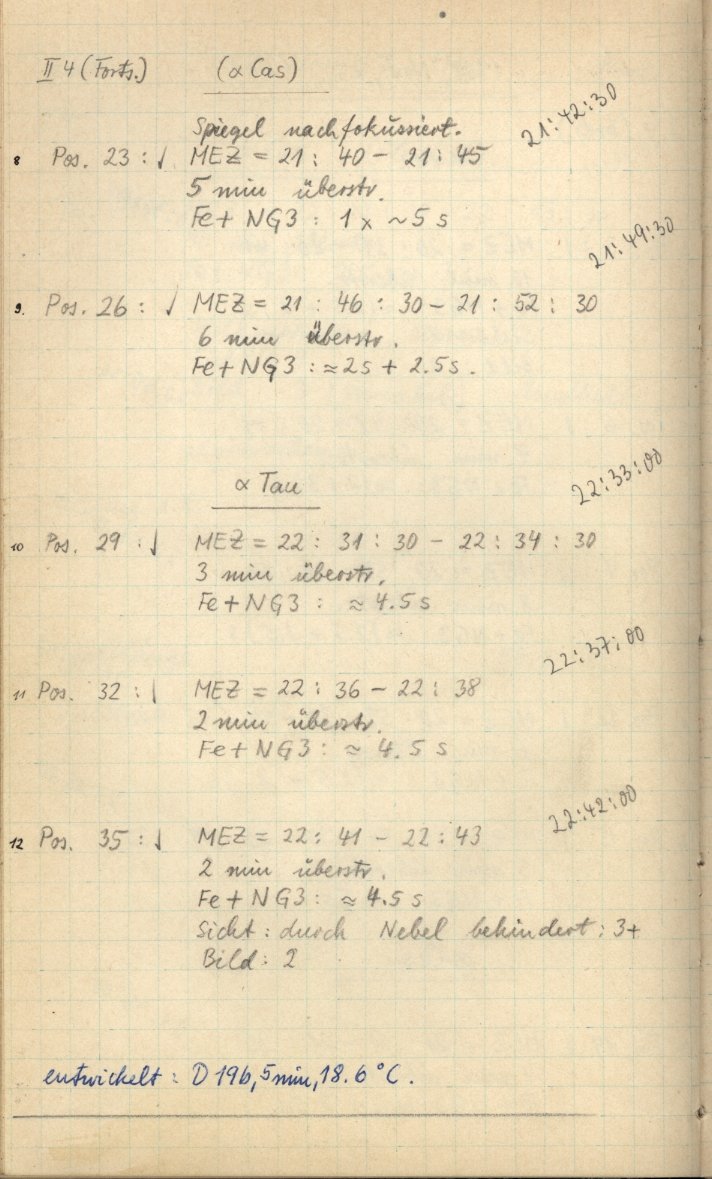 II 4 (Forts.) (α Cas)
Spiegel nachfokussiert.
21:42:30
8 Pos. 23 : ↓ MEZ = 21 : 40 - 21 : 45
5 min überstr.
Fe + NG3 : 1 x ~ 5 s
21:49:30
9. Pos. 26 : ↓ MEZ = 21 : 46 : 30 - 21 : 52 : 30
6 min überstr.
Fe + NG3 : ≈ 2s + 2.5s.
α Tau
22:33:00
10 Pos. 29 : ↓ MEZ = 22 : 31 : 30 - 22 : 34 : 30
3 min überstr.
Fe + NG3 : ≈ 4.5 s
22:37:00
11 Pos. 32 : ↓ MEZ = 22 : 36 - 22 : 38
2 min überstr.
Fe + NG3 : ≈ 4.5 s
22:42:00
12 Pos. 35 : ↓ MEZ = 22 : 41 - 22 : 43
2 min überstr.
Fe + NG3 : ≈ 4.5 s
Sicht : durch Nebel behindert : 3+
Bild : 2
entwickelt : D 19b, 5 min, 18.6 °C.